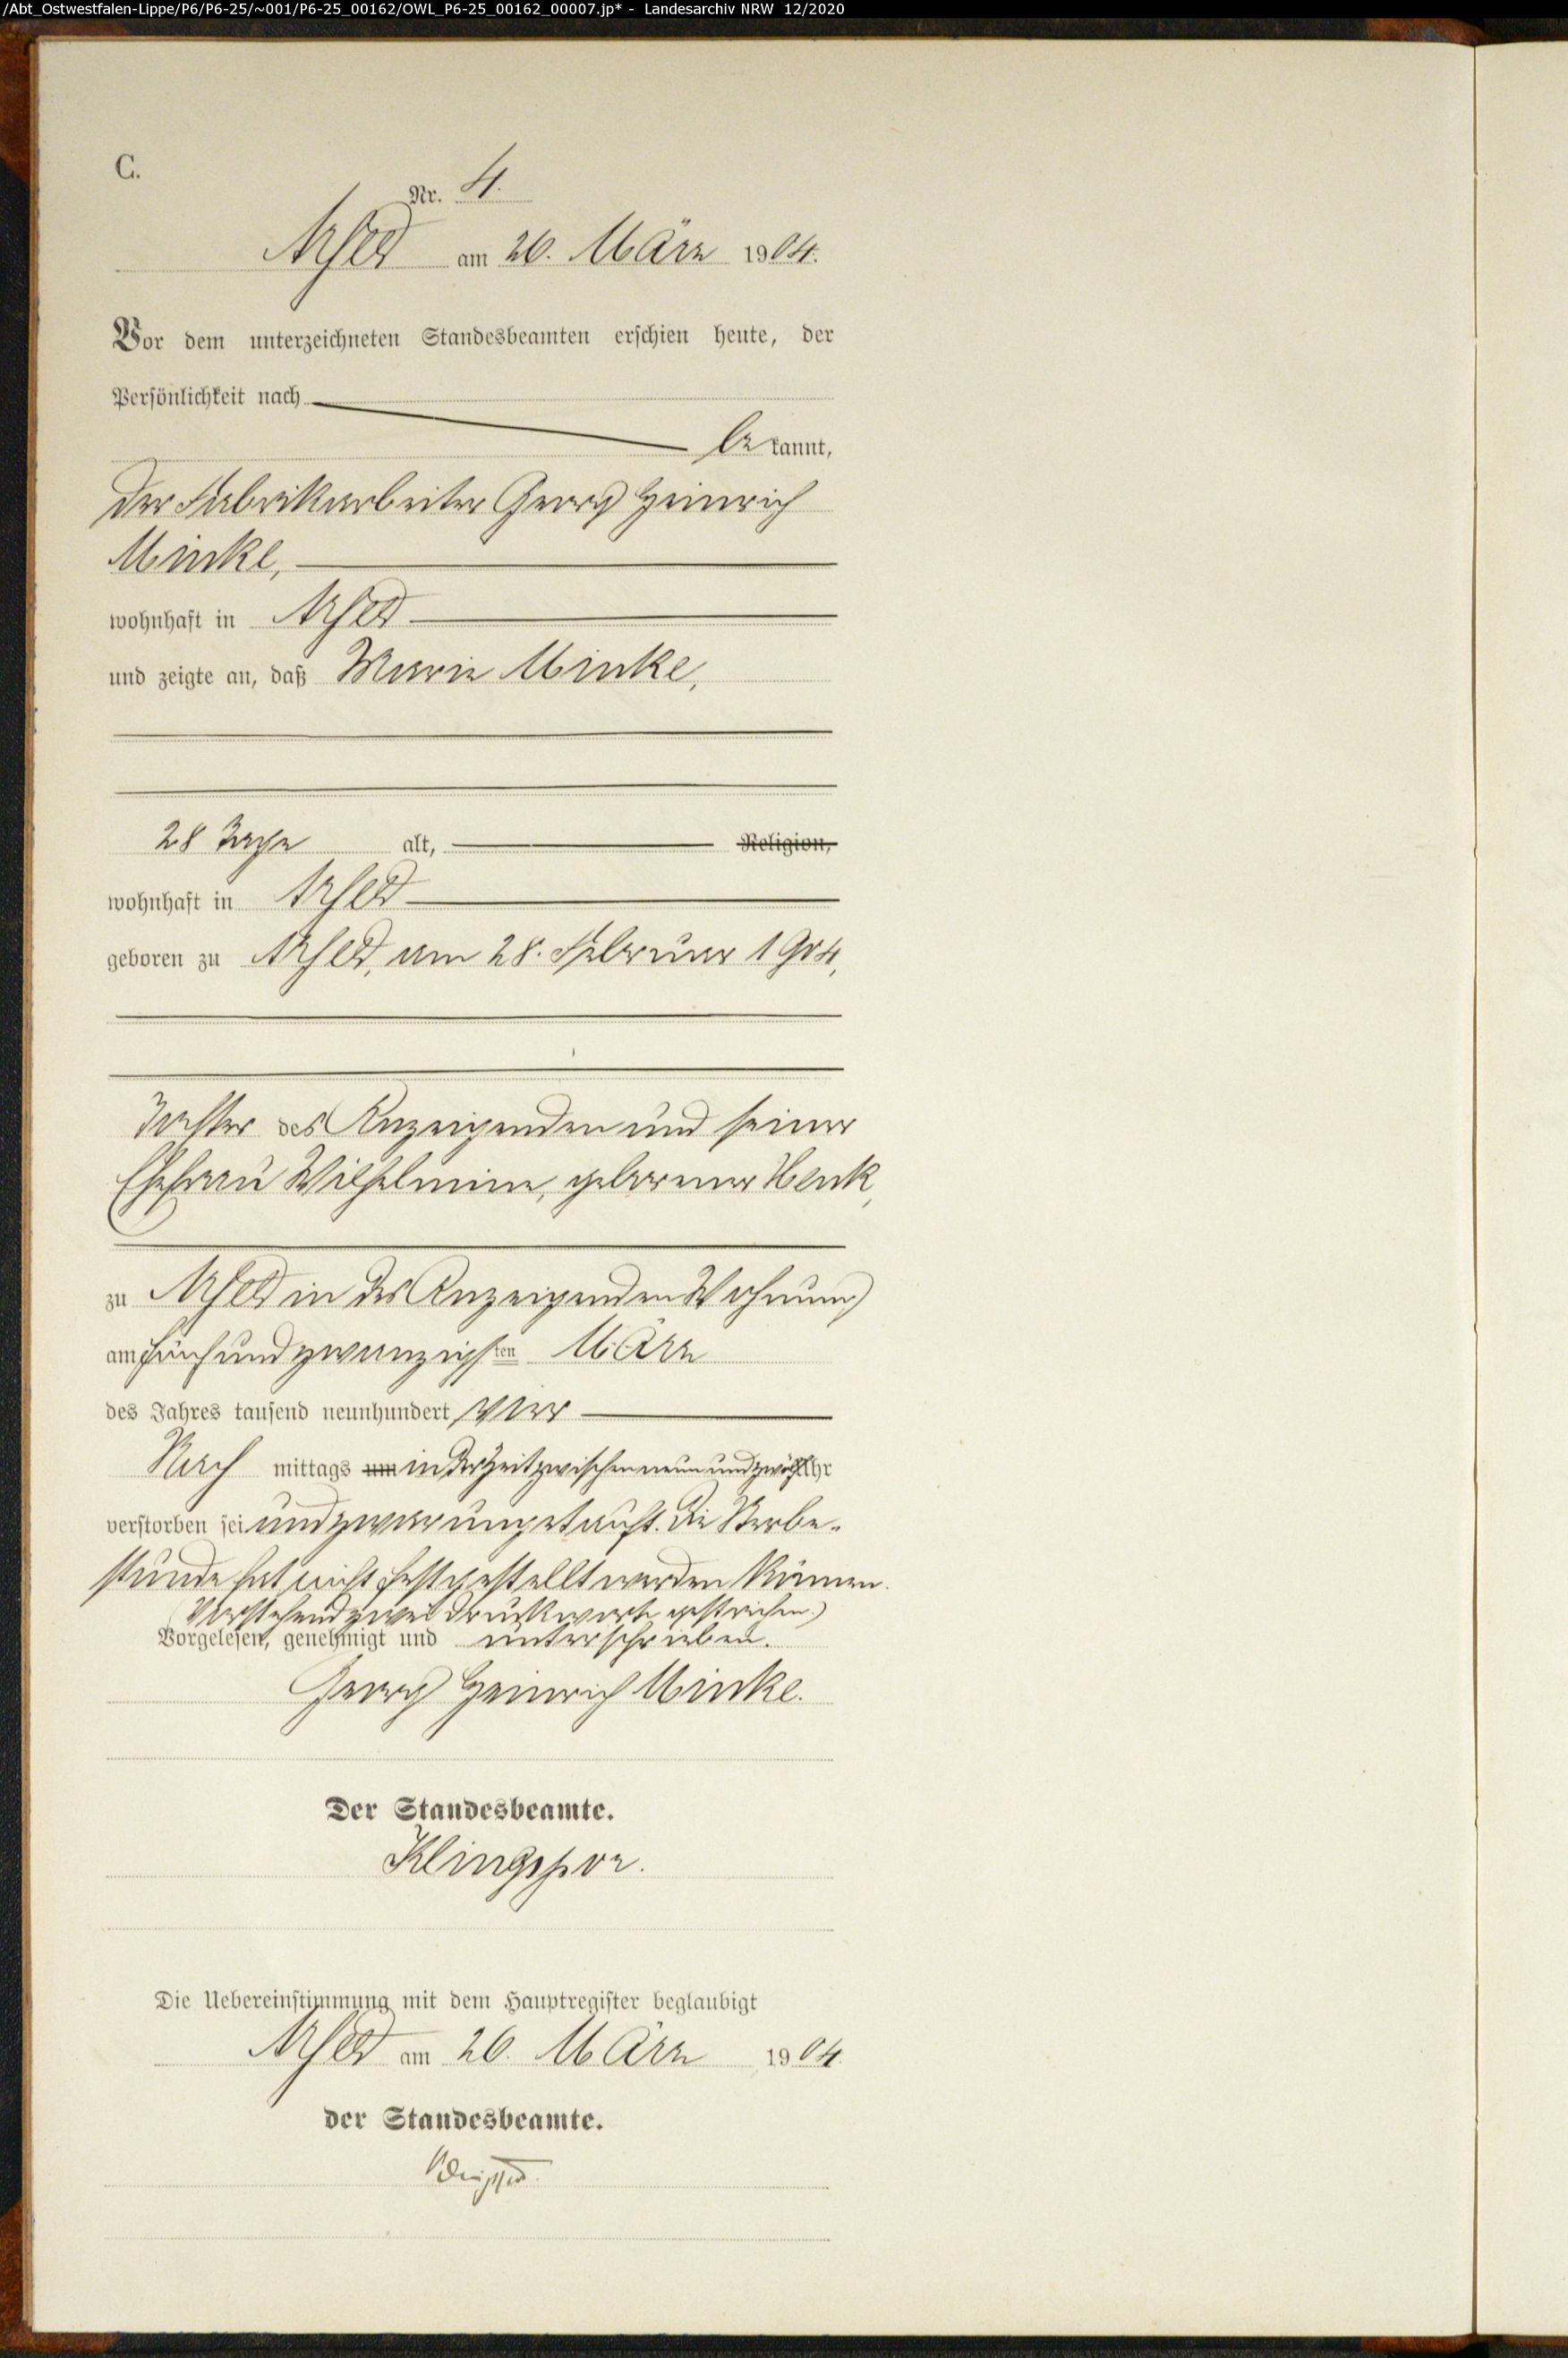 /Abt_Ostwestfalen-Lippe/P6/P6-25/~001/P6-25_00162/OWL_P6-25_00162_00007.jp* - Landesarchiv NRW 12/2020
C.
Nr. 4.
Arfeld am 26. März 1904.
Vor dem unterzeichneten Standesbeamten erschien heute, der
Persönlichkeit nach
bekannt,
der Fabrikarbeiter Georg Heinrich
Minke,
wohnhaft in Arfeld
und zeigte an, daß Marie Minke,
28 Tage alt, Religion,
wohnhaft in Arfeld
geboren zu Arfeld, am 28. Februar 1904,
Tochter des Anzeigenden und seiner
Ehefrau Wilhelmine, geborener Henk,
zu Arfeld in des Anzeigenden Wohnung
am fünfundzwanzigsten März
des Jahres tausend neunhundert vier
Nach mittags um in der Zeit zwischen neun und zwölf Uhr
verstorben sei und zwar ungetauft. Die Sterbe-
stunde hat nicht festgestellt werden können.
(Vorstehend zwei Druckworte gestrichen.)
Vorgelesen, genehmigt und unterschrieben.
Georg Heinrich Minke.
Der Standesbeamte.
Klingspor.
Die Uebereinstimmung mit dem Hauptregister beglaubigt
Arfeld am 26. März 1904
der Standesbeamte.